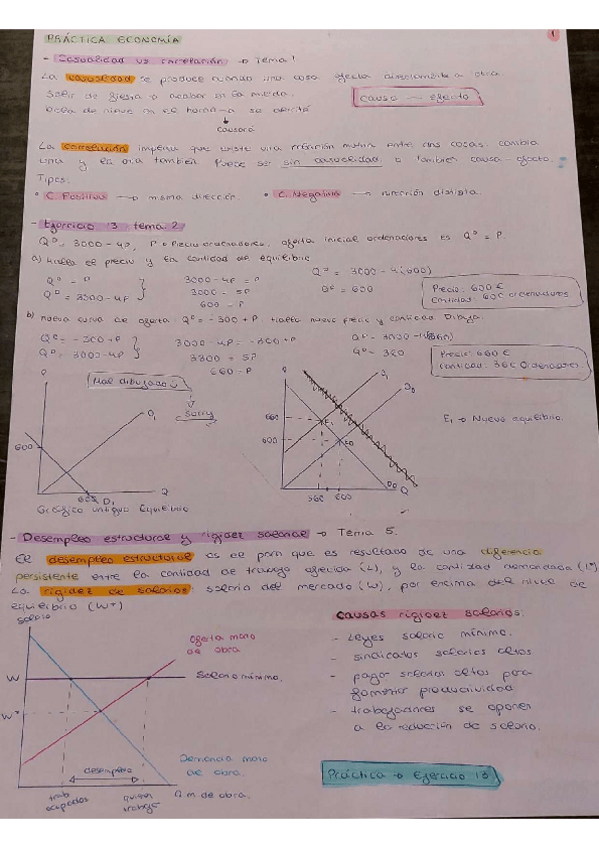 PRÁCTICA ECONOMÍA
1
- Casualidad vs correlación → Tema 1
La casualidad se produce cuando una cosa afecta directamente a otra.
Salir de fiesta → acabar en la mierda.
Bola de nieve en el horno → se
Causa → efecto
La correlación implica que existe una relación mutua entre dos cosas. cambia
una y la otra también. Puede ser sin casualidad, o también causa-efecto.
Tipos:
* C. Positiva → misma dirección. * C. Negativa → dirección distinta.
- Ejercicio 13 tema 2
Qᴰ = 3000 - 4P, P = Precio ordenadores. oferta inicial ordenadores es Qᴼ = P.
a) Halla el precio y la cantidad de equilibrio
Qᴼ = P
Qᴰ = 3000 - 4P
3000 - 4P = P
3000 = 5P
600 = P
Qᴰ = 3000 - 4(600)
Qᴼ = 600
Precio: 600 €
Cantidad: 600 ordenadores
b) nueva curva de oferta: Qᴼ = -300 + P. Halla nuevo precio y cantidad. Dibuja.
Qᴼ = -300 + P
Qᴰ = 3000 - 4P
3000 - 4P = -300 + P
3300 = 5P
660 = P
Qᴰ = 3000 - 4(660)
Qᴰ = 360
Precio: 660 €
Cantidad: 360 Ordenadores.
Mal dibujado
Sorry
600
O₁
600 D₁
Q
Gráfico antiguo Equilibrio
P
O₁
O₀
660
600
E₁
E₀
D₀
Q
360 600
E₁ → Nuevo equilibrio.
- Desempleo estructural y rigidez salarial → Tema 5.
El desempleo estructural es el paro que es resultado de una diferencia
persistente entre la cantidad de trabajo ofrecida (L), y la cantidad demandada
La rigidez de salarios: salario del mercado (W), por encima del nivel de
equilibrio (W*)
salario
oferta mano
de obra
W
Salario mínimo.
W*
Demanda mano
de obra.
desempleo
trab
ocupados
quieren
trabajar
Q m. de obra.
Causas rigidez salarios:
- Leyes salario mínimo.
- sindicatos salarios altos
- pagar salarios altos para
fomentar productividad
- trabajadores se oponen
a la reducción de salario.
Práctica → Ejercicio 13